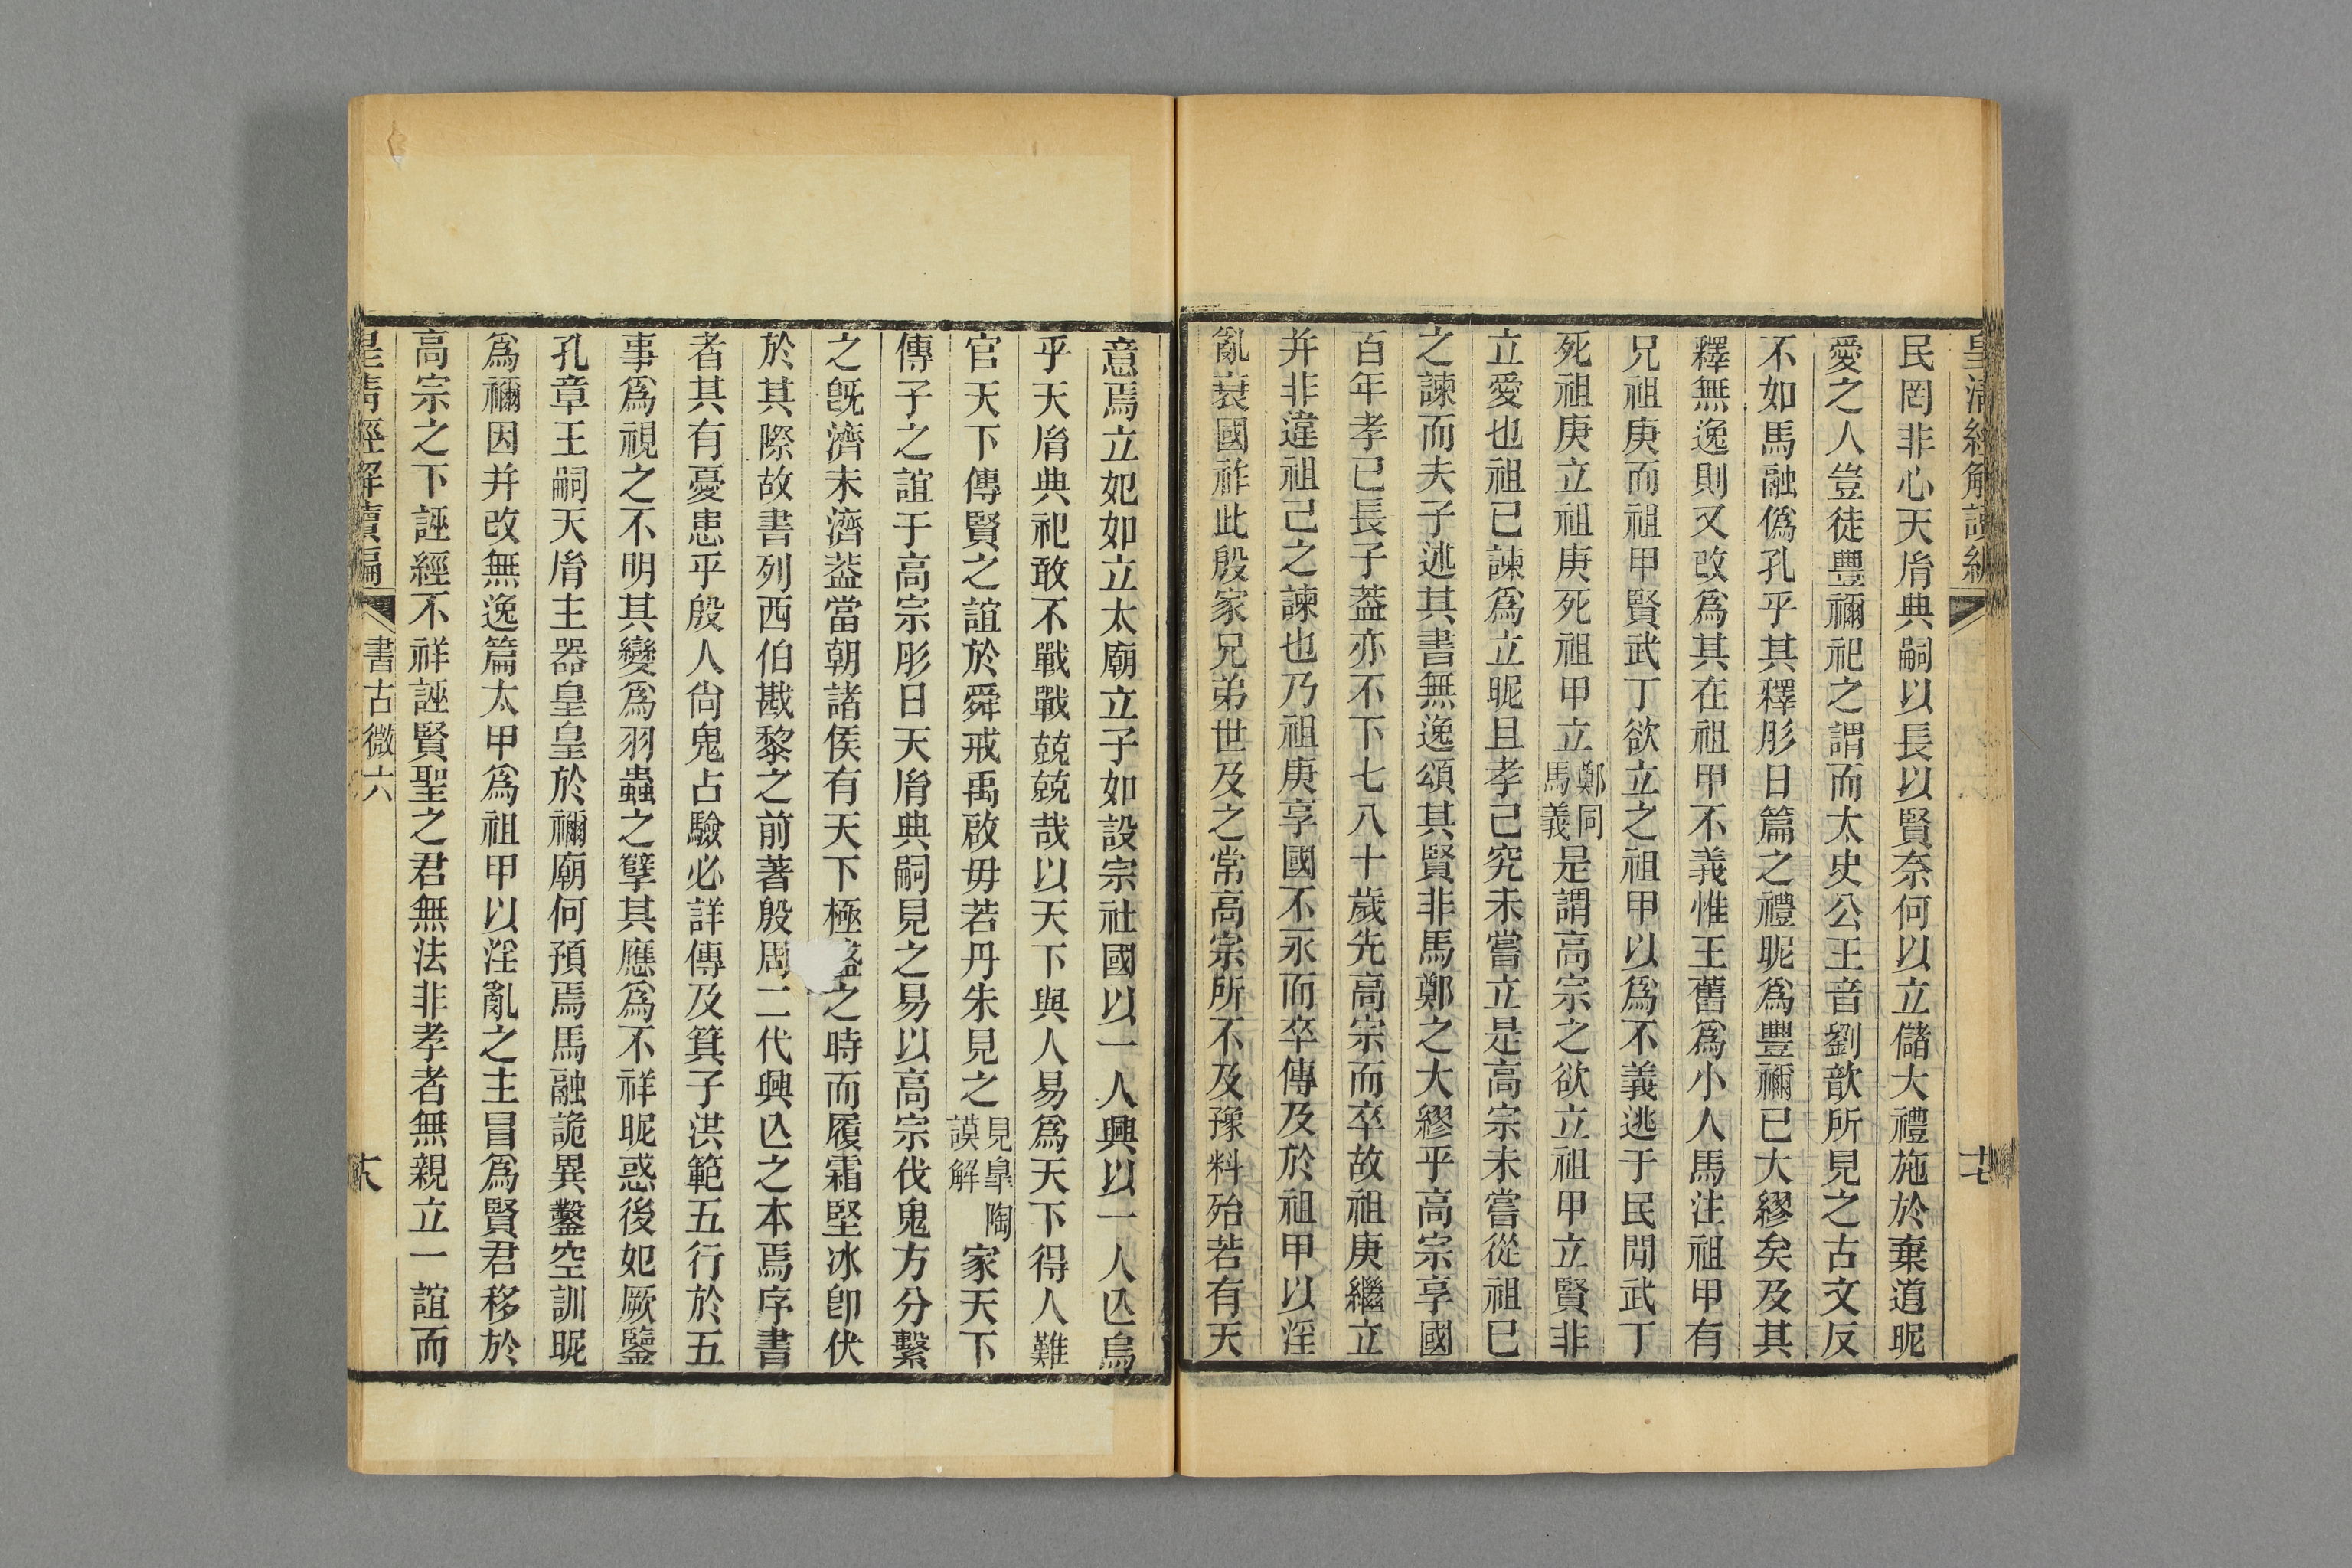 皇清經解續編
十七
民罔非心天胤典嗣以長以賢奈何以立儲大禮施於棄道昵
愛之人豈徒豐禰祀之謂而太史公王音劉歆所見之古文反
不如馬融僞孔乎其釋肜日篇之禮昵爲豐禰已大繆矣及其
釋無逸則又改爲其在祖甲不義惟王舊爲小人馬注祖甲有
兄祖庚而祖甲賢武丁欲立之祖甲以爲不義逃于民閒武丁
死祖庚立祖庚死祖甲立鄭同馬義是謂高宗之欲立祖甲立賢非
立愛也祖己諫爲立昵且孝己究未嘗立是高宗未嘗從祖巳
之諫而夫子述其書無逸頌其賢非馬鄭之大繆乎高宗享國
百年孝已長子葢亦不下七八十歲先高宗而卒故祖庚繼立
并非違祖己之諫也乃祖庚享國不永而卒傳及於祖甲以淫
亂衰國祚此殷家兄弟世及之常高宗所不及豫料殆若有天
意焉立妃如立太廟立子如設宗社國以一人興以一人亾烏
乎天胤典祀敢不戰戰兢兢哉以天下與人易爲天下得人難
官天下傳賢之誼於舜戒禹啟毋若丹朱見之見臯陶謨解家天下
傳子之誼于高宗肜日天胤典嗣見之易以高宗伐鬼方分繫
之旣濟未濟葢當朝諸侯有天下極盛之時而履霜堅冰卽伏
於其際故書列西伯戡黎之前著殷周二代興亾之本焉序書
者其有憂患乎殷人尙鬼占驗必詳傳及箕子洪範五行於五
事爲視之不明其變爲羽蟲之孼其應爲不祥昵惑後妃厥鑒
孔章王嗣天胤主器皇皇於禰廟何預焉馬融詭異鑿空訓昵
爲禰因并改無逸篇太甲爲祖甲以淫亂之主冒爲賢君移於
高宗之下誣經不祥誣賢聖之君無法非孝者無親立一誼而
皇清經解續編
書古微六
十八